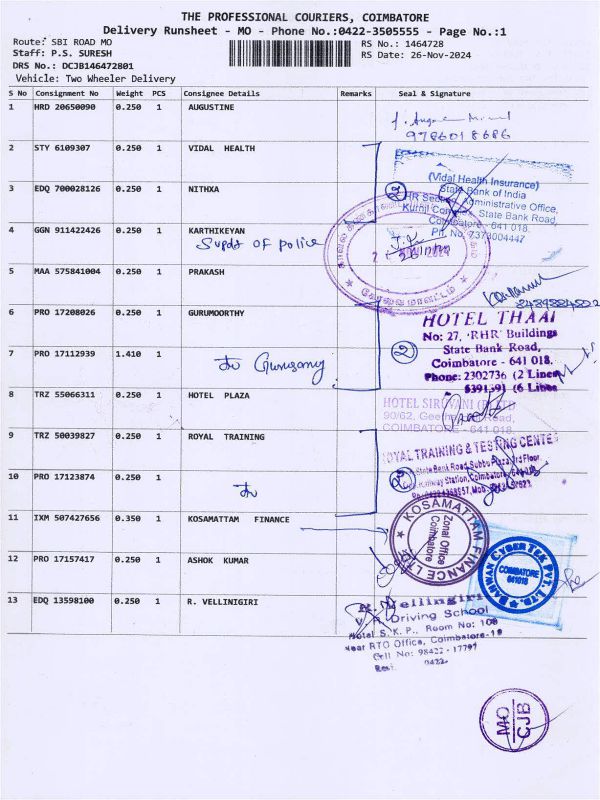 THE PROFESSIONAL COURIERS, COIMBATORE
Delivery Runsheet - MO - Phone No.:0422-3505555 - Page No.:1
Route: SBI ROAD MO
RS No.: 1464728
Staff: P.S. SURESH
RS Date: 26-Nov-2024
DRS No.: DCJB146472801
Vehicle: Two Wheeler Delivery
S No Consignment No Weight PCS Consignee Details Remarks Seal & Signature
1 HRD 20650090 0.250 1 AUGUSTINE
9786018686
2 STY 6109307 0.250 1 VIDAL HEALTH
(Vidal Health Insurance)
State Bank of India
3 EDQ 700028126 0.250 1 NITHXA
2
HR Section, Administrative Office,
State Bank Road,
Coimbatore - 641 018.
Ph. No. 7373004447
4 GGN 911422426 0.250 1 KARTHIKEYAN
Supdt of police
5 MAA 575841004 0.250 1 PRAKASH
6 PRO 17208026 0.250 1 GURUMOORTHY
HOTEL THAAI
No: 27, 'RHR' Buildings
State Bank Road,
Coimbatore - 641 018.
Phone: 2302736 (2 Lines
(6 Lines
7 PRO 17112939 1.410 1
2
8 TRZ 55066311 0.250 1 HOTEL PLAZA
HOTEL SIRUVANI (P) LTD
90/62,
COIMBATORE - 641 018.
9 TRZ 50039827 0.250 1 ROYAL TRAINING
ROYAL TRAINING & TESTING CENTE
State Bank Road, Subbu Plaza, 3rd Floor,
10 PRO 17123874 0.250 1
2
11 IXM 507427656 0.350 1 KOSAMATTAM FINANCE
KOSAMATTAM FINANCE LTD
Zonal Office
Coimbatore
12 PRO 17157417 0.250 1 ASHOK KUMAR
BAHWAN CYBER TEK PVT. Ltd.
COIMBATORE
641018
13 EDQ 13598100 0.250 1 R. VELLINGIRI
R. Vellingiri
Driving School
Hotel S.K.P., Room No: 108
Near RTO Office, Coimbatore-18
Cell No: 98422 - 17797
Resi. 0422-
MO
CJB